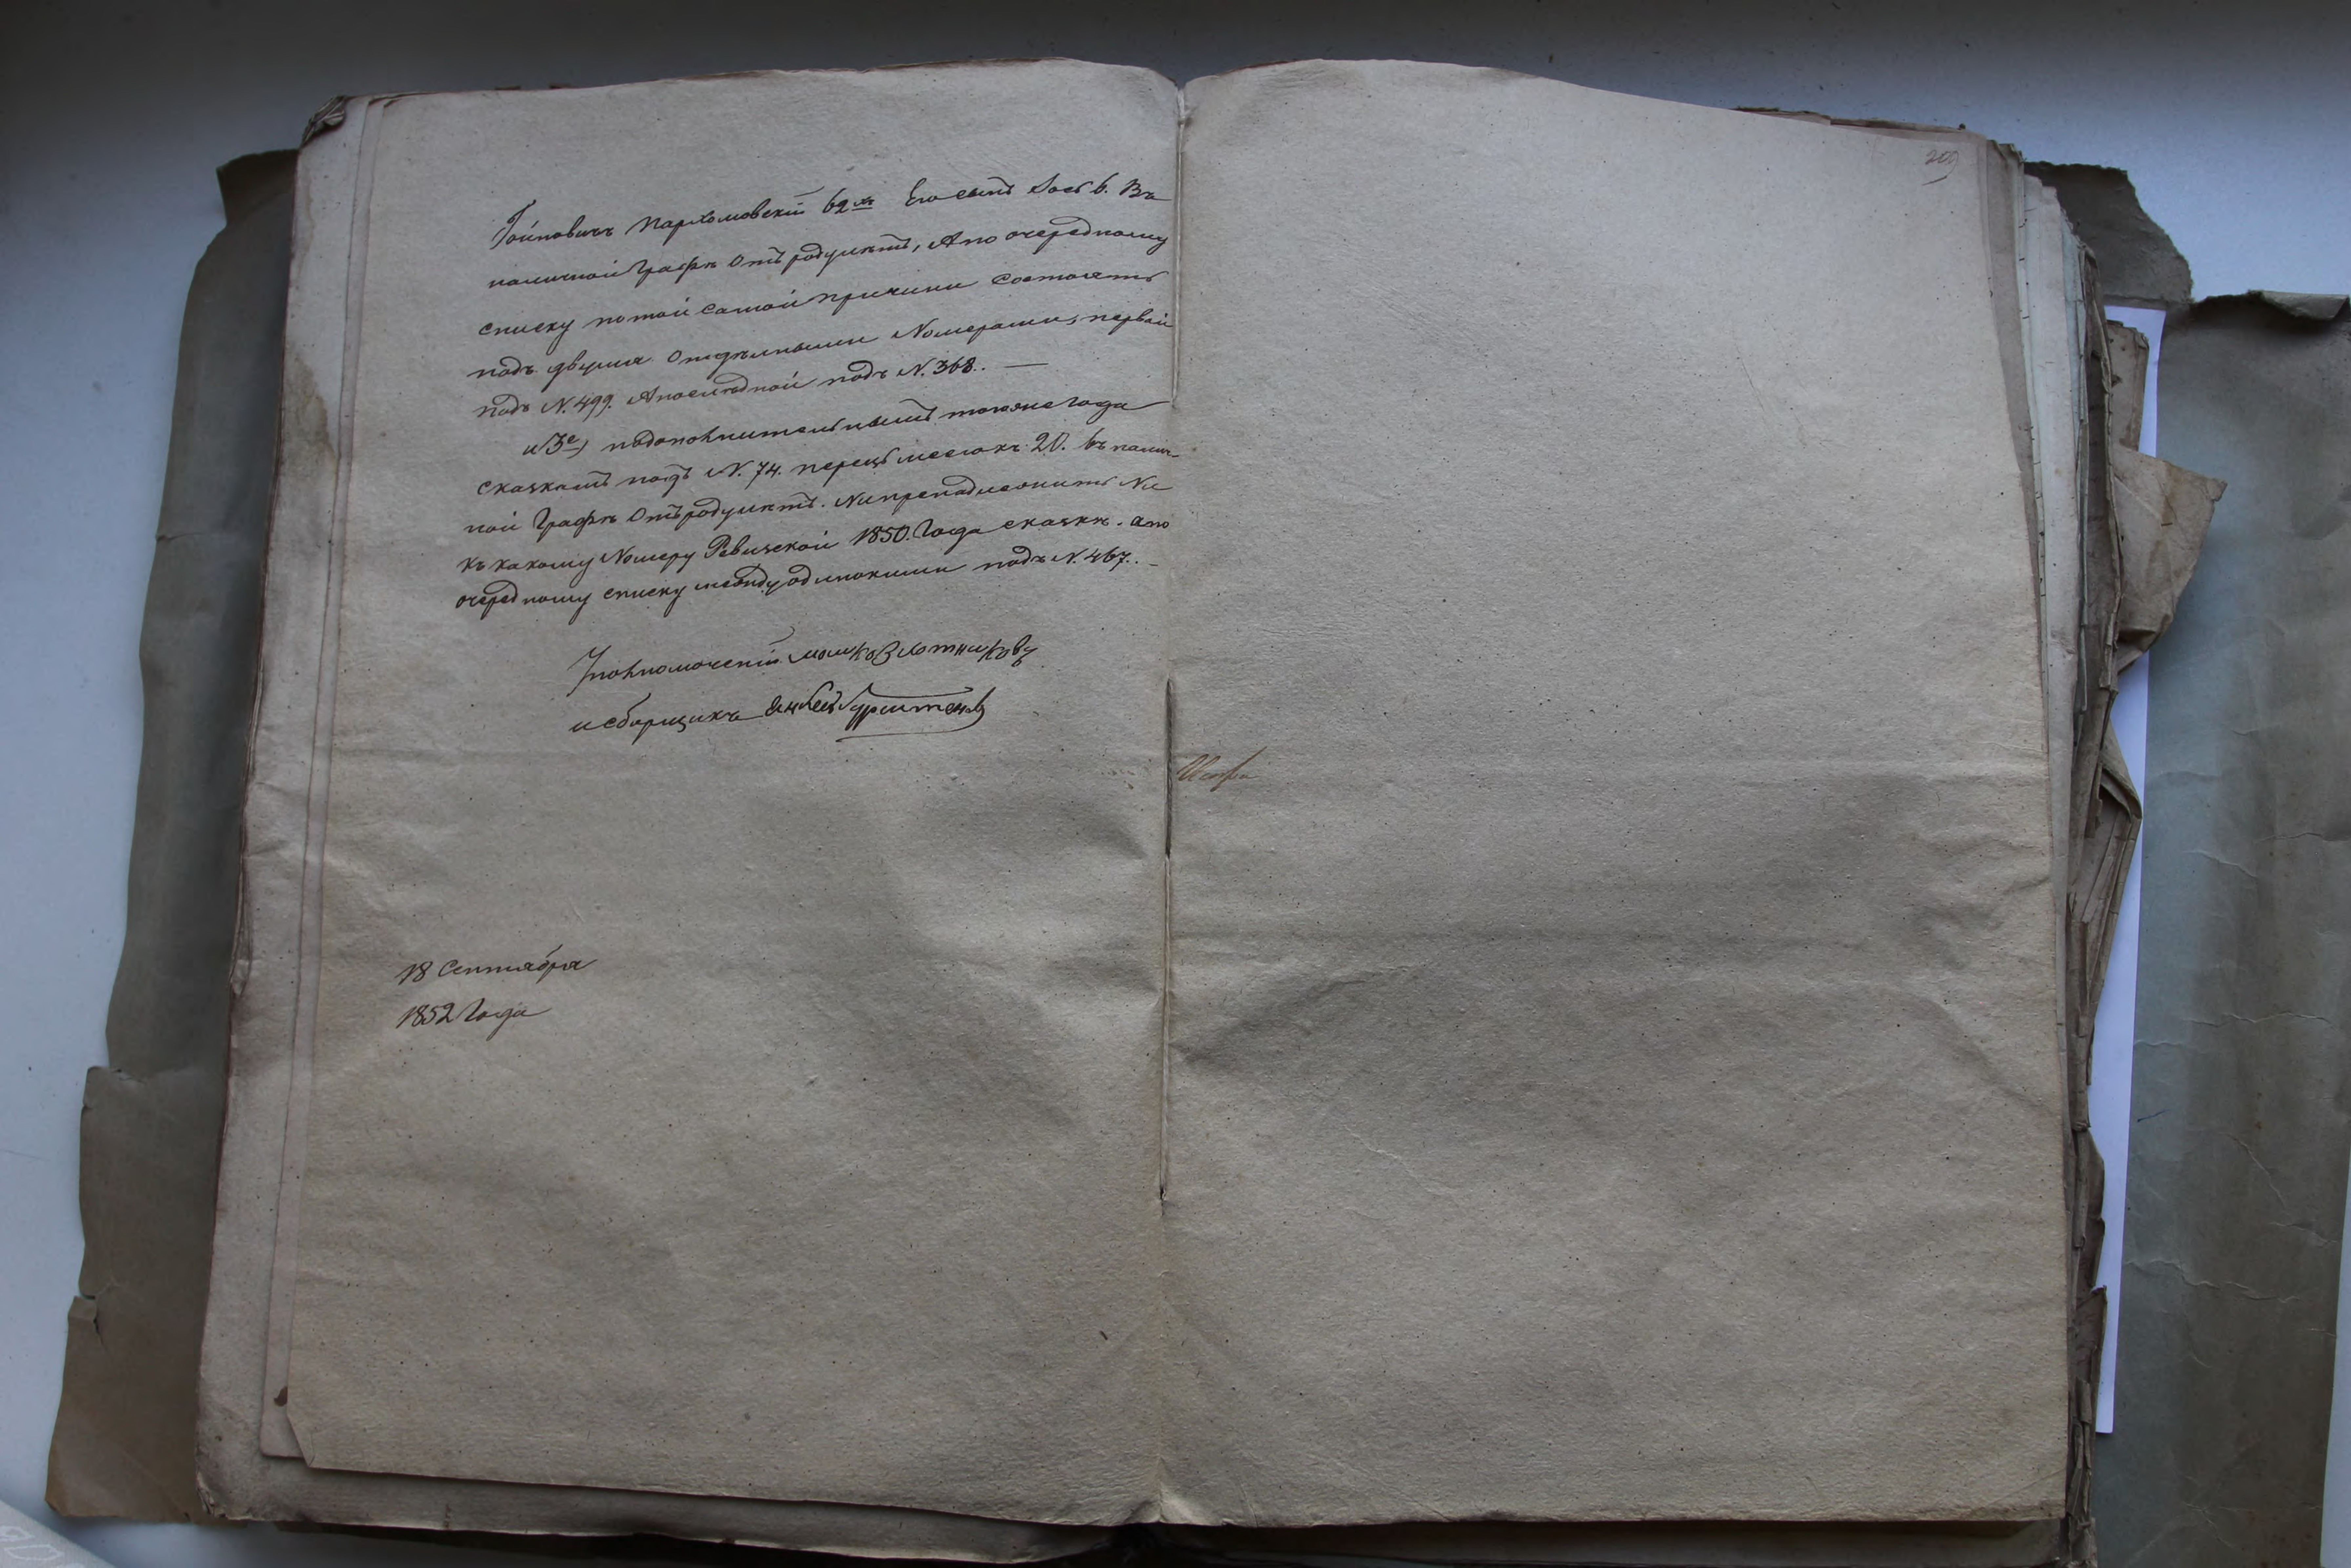 Гойновичъ Пархомовскій 62хъ Его сынъ Іосъ 6. Въ
наличной графѣ отъ родумѣтъ, А по очередному
списку по той самой причини состоятъ
подъ двумя отдѣльными Номерами, первой
подъ N. 499. А последной подъ N. 368. —
и 3е) по дополнительнымъ того же года
сказкамъ подъ N. 74. перецъ мееюкъ 20. въ налич-
ной графѣ отъ родумѣтъ. Непренадлежитъ Не
къ какому Номеру Ревизской 1850. Года сказкѣ. а по
очередному списку между одинокими подъ N. 467. –
Уполномоченій
и сборщикъ
18 Сентября
1852 Года
209